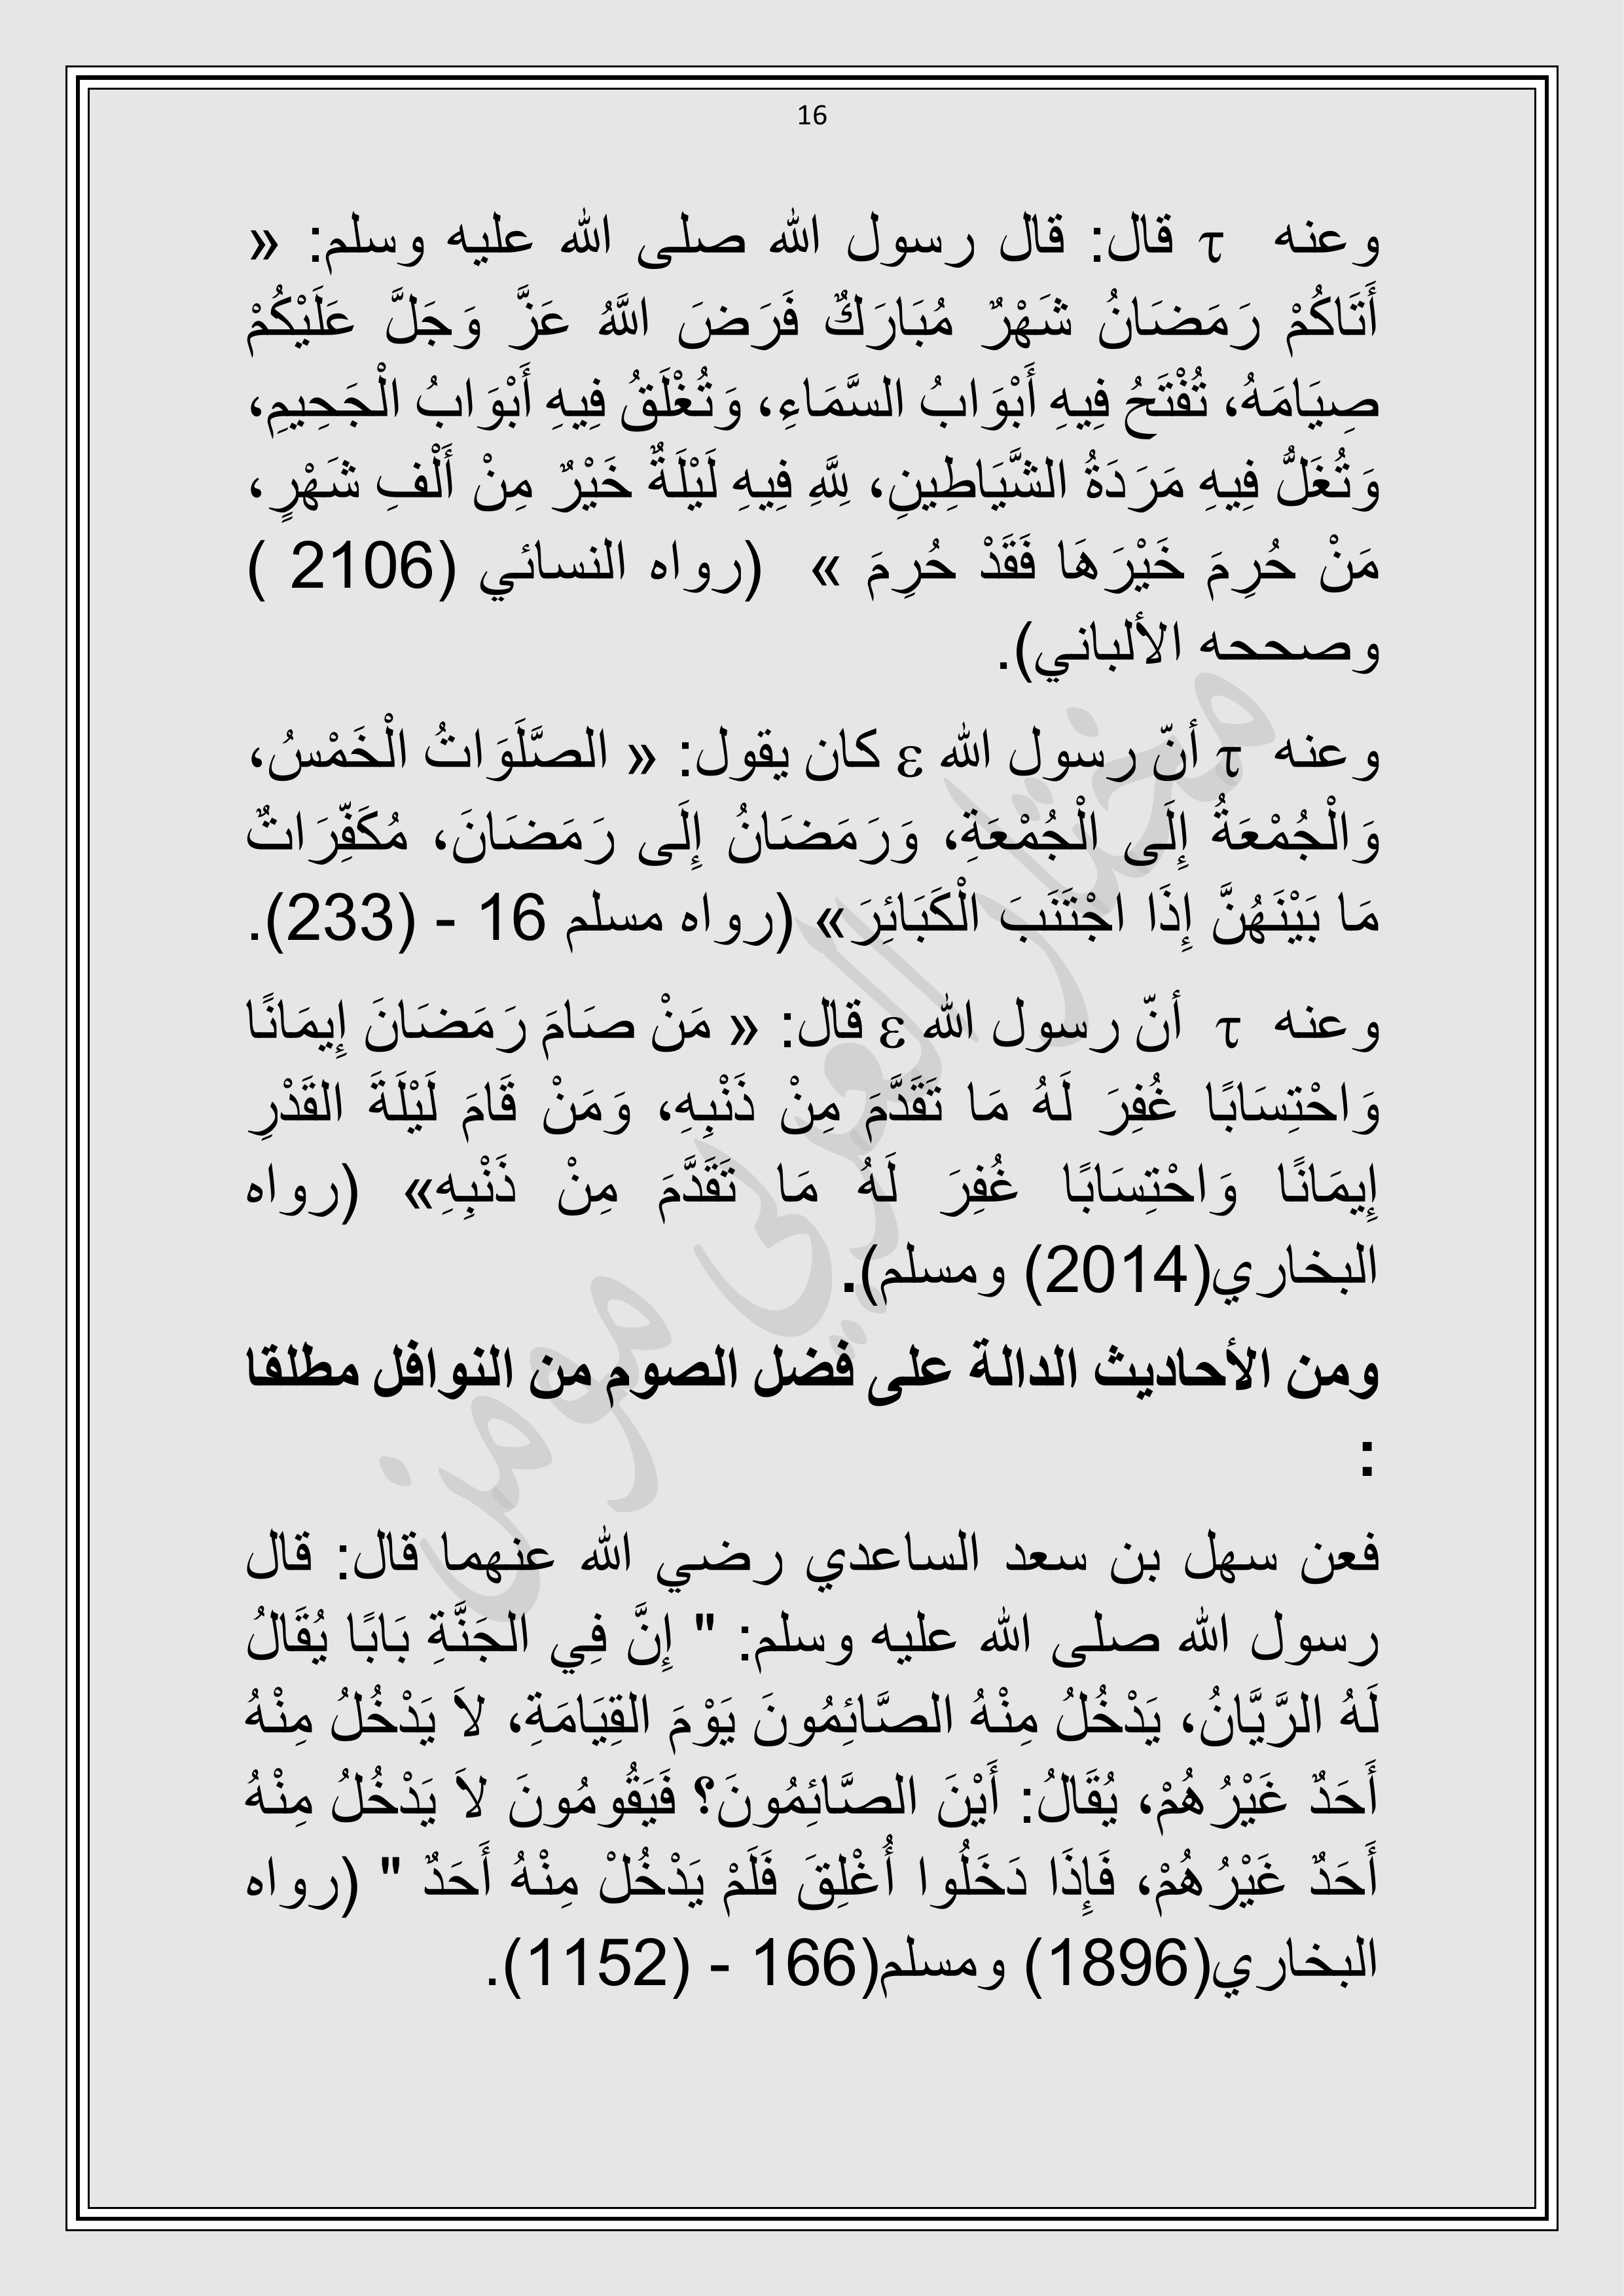 16
وعنه τ قال: قال رسول الله صلى الله عليه وسلم: «
أَتَاكُمْ رَمَضَانُ شَهْرٌ مُبَارَكٌ فَرَضَ اللَّهُ عَزَّ وَجَلَّ عَلَيْكُمْ
صِيَامَهُ، تُفْتَحُ فِيهِ أَبْوَابُ السَّمَاءِ، وَتُغْلَقُ فِيهِ أَبْوَابُ الْجَحِيمِ،
وَتُغَلُّ فِيهِ مَرَدَةُ الشَّيَاطِينِ، لِلَّهِ فِيهِ لَيْلَةٌ خَيْرٌ مِنْ أَلْفِ شَهْرٍ،
مَنْ حُرِمَ خَيْرَهَا فَقَدْ حُرِمَ » (رواه النسائي (2106 )
وصححه الألباني).
وعنه τ أنّ رسول الله ε كان يقول: « الصَّلَوَاتُ الْخَمْسُ،
وَالْجُمْعَةُ إِلَى الْجُمْعَةِ، وَرَمَضَانُ إِلَى رَمَضَانَ، مُكَفِّرَاتٌ
مَا بَيْنَهُنَّ إِذَا اجْتَنَبَ الْكَبَائِرَ» (رواه مسلم 16 - (233).
وعنه τ أنّ رسول الله ε قال: « مَنْ صَامَ رَمَضَانَ إِيمَانًا
وَاحْتِسَابًا غُفِرَ لَهُ مَا تَقَدَّمَ مِنْ ذَنْبِهِ، وَمَنْ قَامَ لَيْلَةَ القَدْرِ
إِيمَانًا وَاحْتِسَابًا غُفِرَ لَهُ مَا تَقَدَّمَ مِنْ ذَنْبِهِ» (رواه
البخاري(2014) ومسلم).
ومن الأحاديث الدالة على فضل الصوم من النوافل مطلقا
:
فعن سهل بن سعد الساعدي رضي الله عنهما قال: قال
رسول الله صلى الله عليه وسلم: " إِنَّ فِي الجَنَّةِ بَابًا يُقَالُ
لَهُ الرَّيَّانُ، يَدْخُلُ مِنْهُ الصَّائِمُونَ يَوْمَ القِيَامَةِ، لاَ يَدْخُلُ مِنْهُ
أَحَدٌ غَيْرُهُمْ، يُقَالُ: أَيْنَ الصَّائِمُونَ؟ فَيَقُومُونَ لاَ يَدْخُلُ مِنْهُ
أَحَدٌ غَيْرُهُمْ، فَإِذَا دَخَلُوا أُغْلِقَ فَلَمْ يَدْخُلْ مِنْهُ أَحَدٌ " (رواه
البخاري(1896) ومسلم(166 - (1152).
مختار العربي مومن